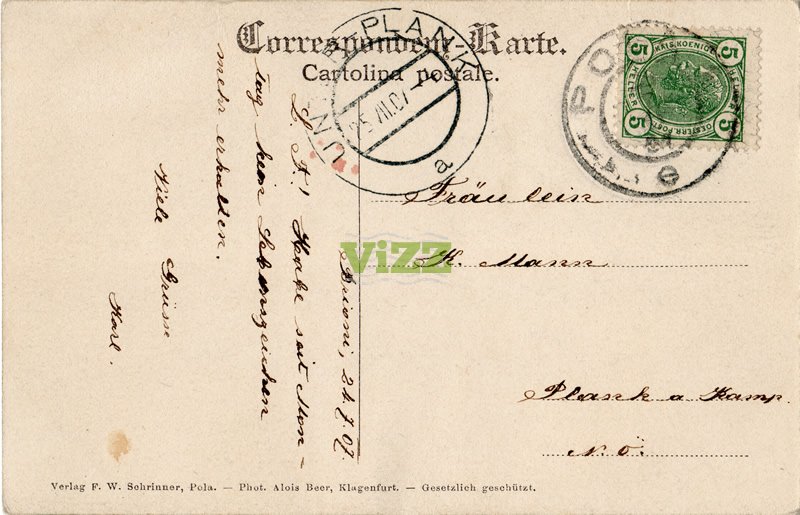 Correspondenz-Karte.
Cartolina postale.
UNTER PLANK
25.VII.07
a
PO
e
5 5
KAIS. KOENIGL.
HELLER HELLER
5 5
OESTERR. POST
Fräulein
K. Mann
Plank a Kamp
N. Ö.
Brioni, 24.7.07.
L. F.! Habe seit Mon-
tag kein Lebenszeichen
mehr erhalten.
Viele Grüsse
Karl.
ViZZ
Verlag F. W. Schrinner, Pola. — Phot. Alois Beer, Klagenfurt. — Gesetzlich geschützt.